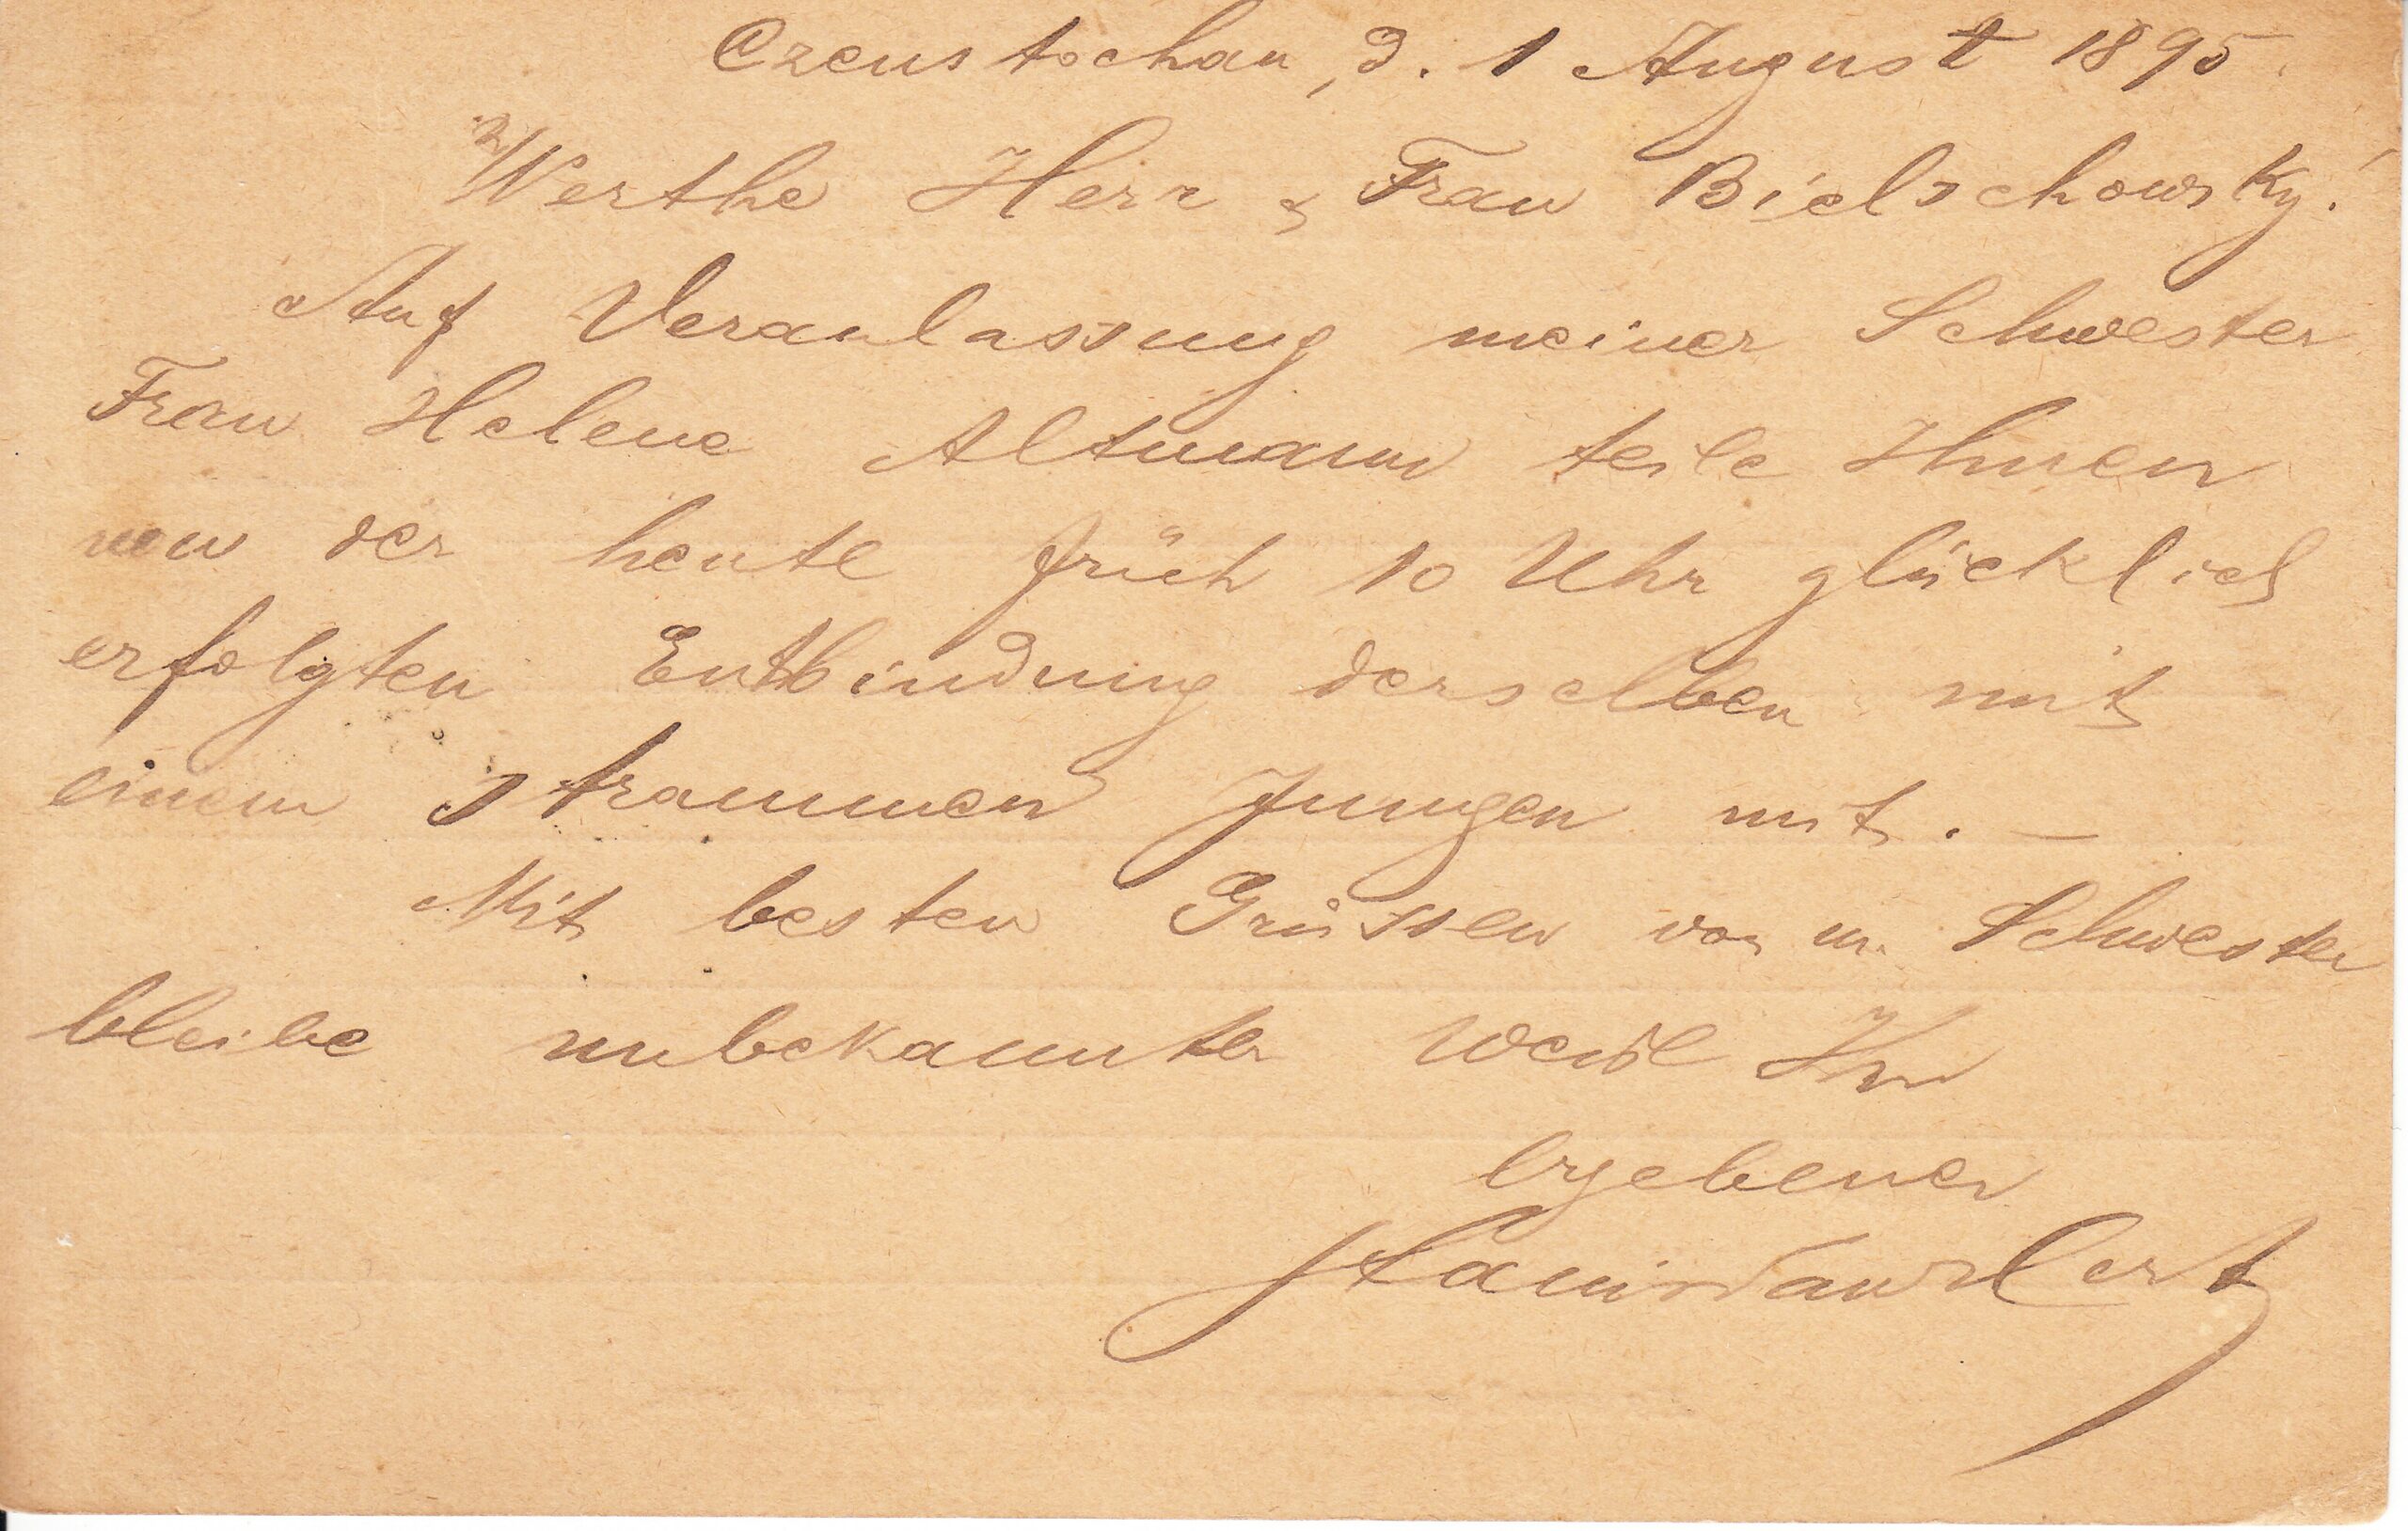 Czenstochau, d. 1 August 1895.
Werthe Herr & Frau Bielschowsky!
Auf Veranlassung meiner Schwester
Frau Helene Altmann teile Ihnen
von der heute früh 10 Uhr glücklich
erfolgten Entbindung derselben mit
einem strammen Jungen mit. —
Mit besten Grüssen von m. Schwester
bleibe unbekannter weise Ihr
ergebener